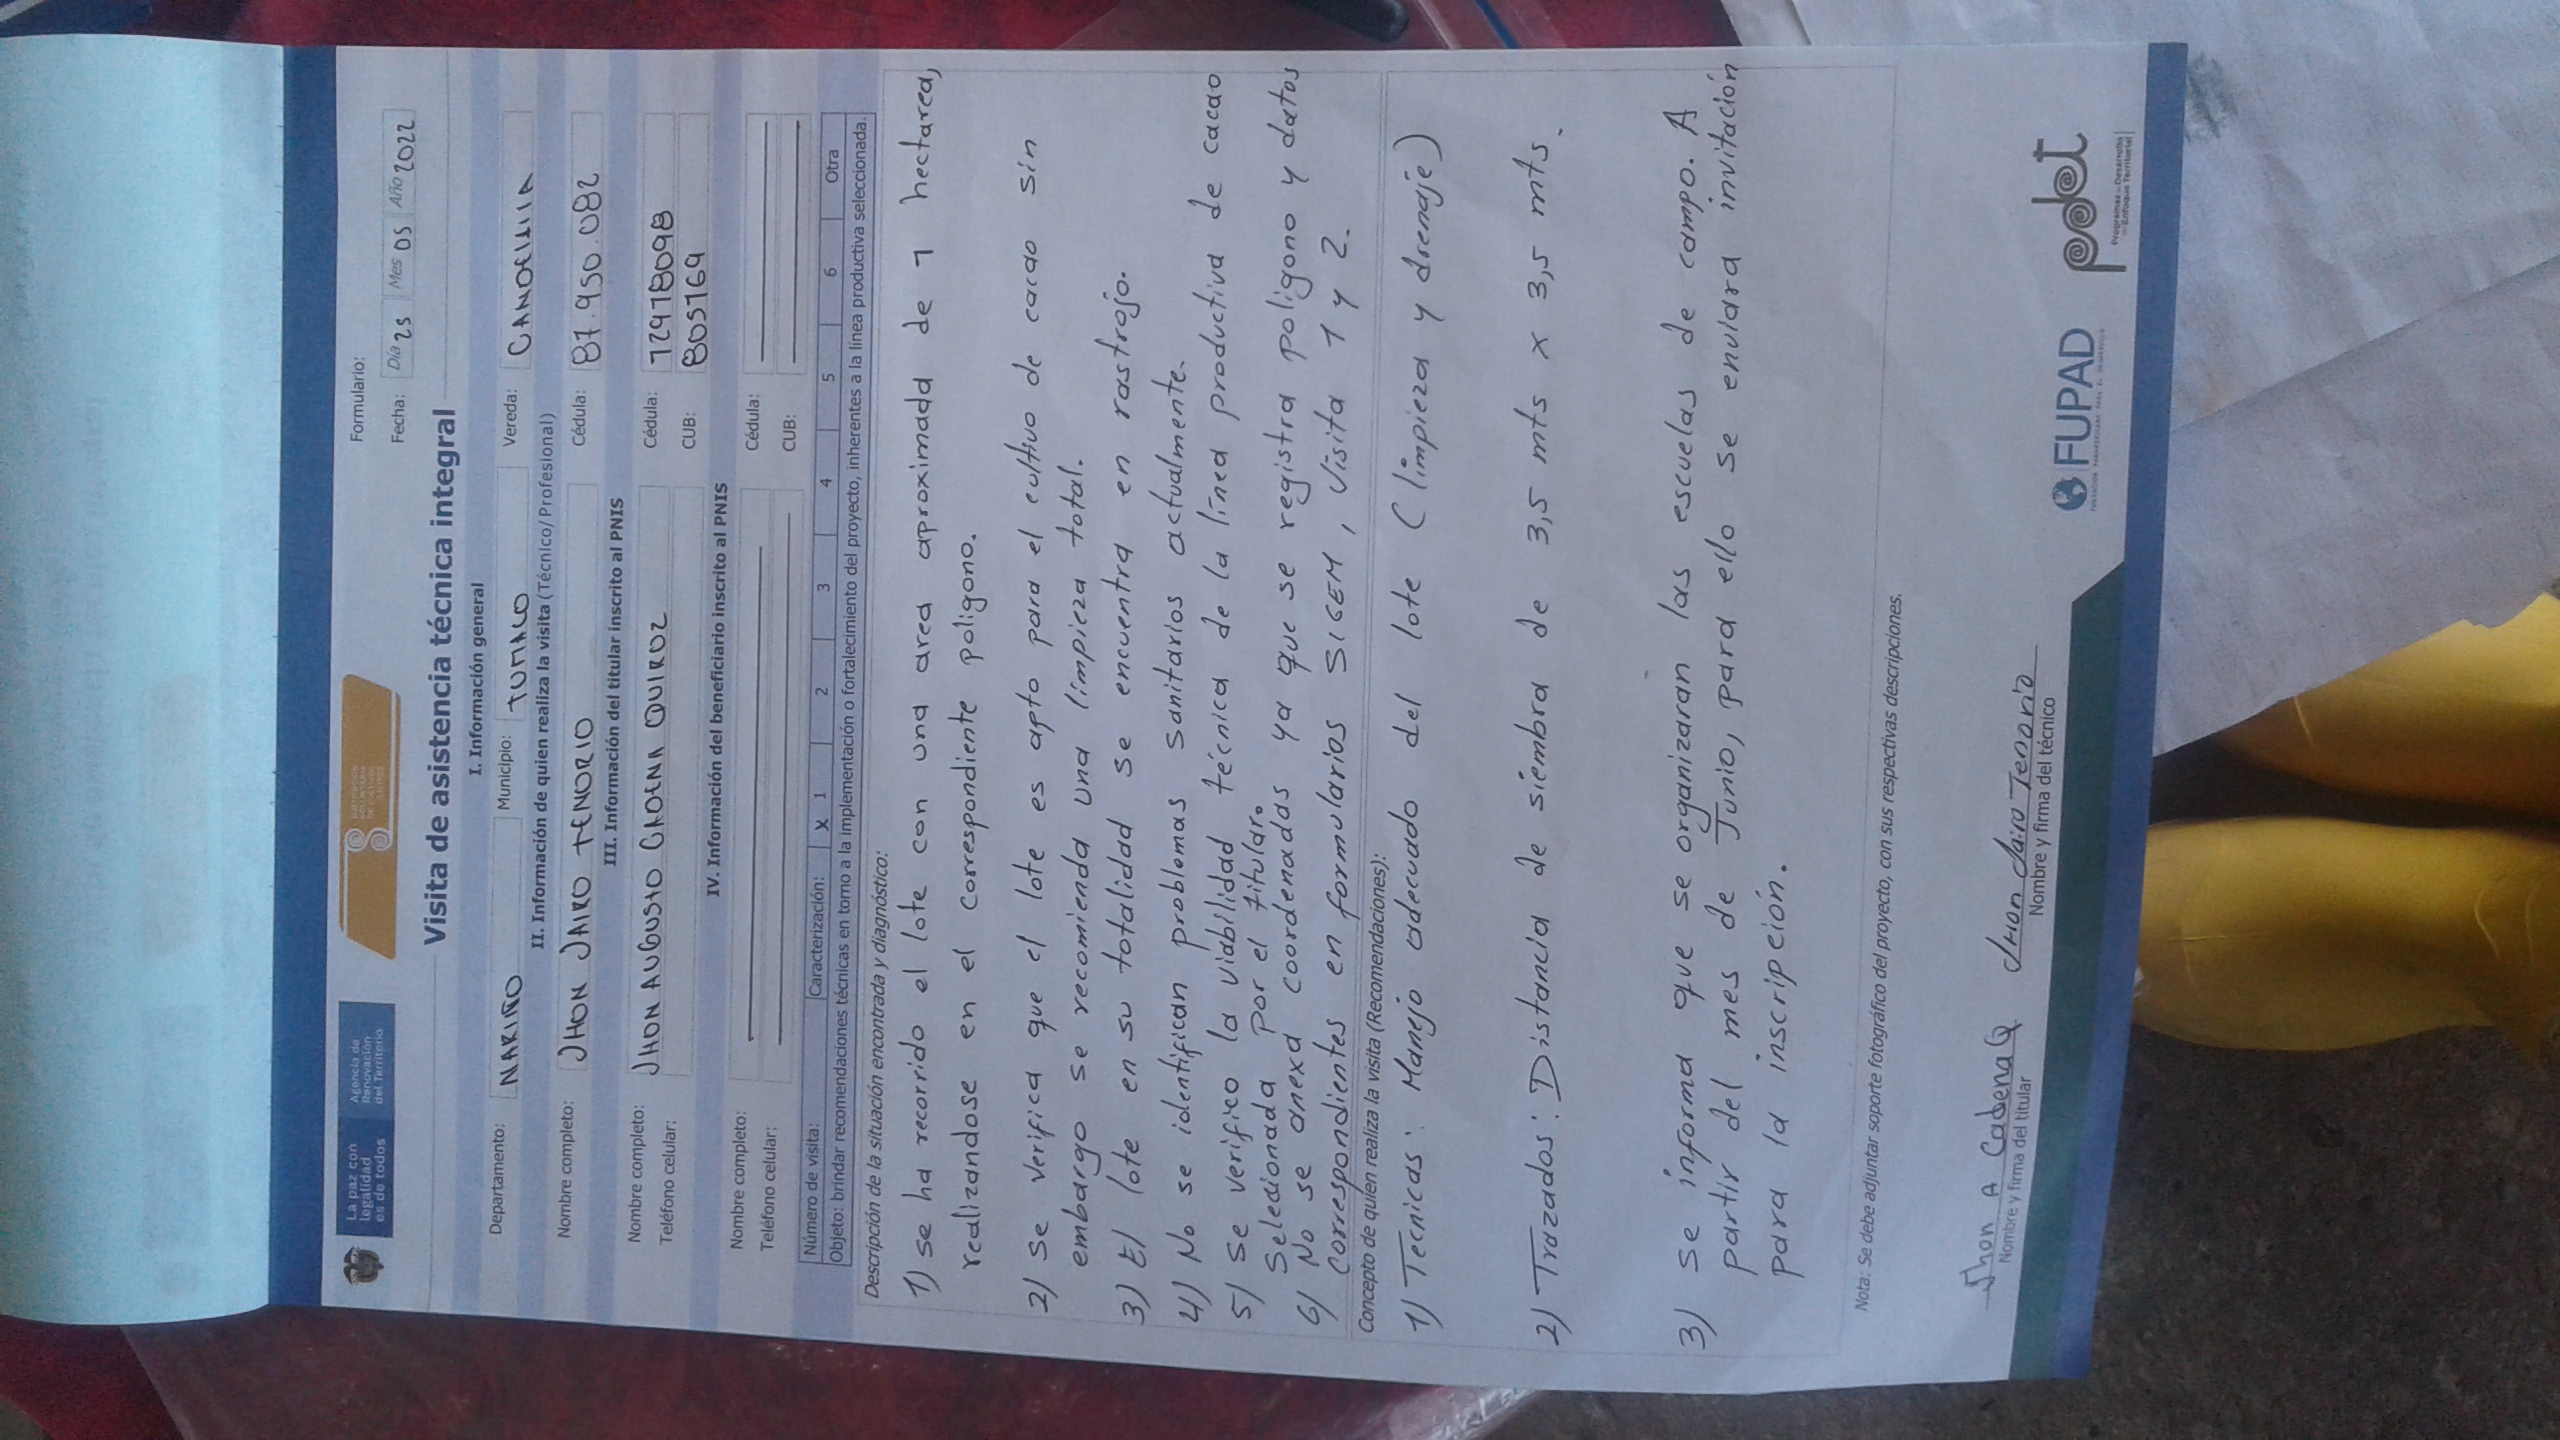 La paz con
legalidad
es de todos
Agencia de
Renovación
del Territorio
Formulario:
Fecha: Día 25 Mes 05 Año 2022
Visita de asistencia técnica integral
I. Información general
Departamento: NARIÑO Municipio: TUMACO Vereda: CANDELILLA
II. Información de quien realiza la visita (Técnico/Profesional)
Nombre completo: JHON JAIRO TENORIO Cédula: 87.950.082
III. Información del titular inscrito al PNIS
Nombre completo: JHON AUGUSTO CADENA QUIROZ Cédula: 1297178098
Teléfono celular: CUB: 805169
IV. Información del beneficiario inscrito al PNIS
Nombre completo: Cédula:
Teléfono celular: CUB:
Número de visita: Caracterización: X 1 2 3 4 5 6 Otra
Objeto: brindar recomendaciones técnicas en torno a la implementación o fortalecimiento del proyecto, inherentes a la línea productiva seleccionada.
Descripción de la situación encontrada y diagnóstico:
1) se ha recorrido el lote con una area aproximada de 1 hectarea,
realizandose en el correspondiente poligono.
2) Se verifica que el lote es apto para el cultivo de cacao sin
embargo se recomienda una limpieza total.
3) El lote en su totalidad se encuentra en rastrojo.
4) No se identifican problemas sanitarios actualmente.
5) Se verifico la viabilidad técnica de la línea productiva de cacao
Seledionada por el titular.
6) No se anexa coordenadas ya que se registra poligono y datos
Correspondientes en formularios SIGEM, Visita 1 y 2.
Concepto de quien realiza la visita (Recomendaciones):
1) Tecnicas: Manejo adecuado del lote (limpieza y drenaje)
2) Trazados: Distancia de siembra de 3,5 mts x 3,5 mts.
3) Se informa que se organizaran las escuelas de campo. A
partir del mes de Junio, para ello se enviara invitación
para la inscripción.
Nota: Se debe adjuntar soporte fotográfico del proyecto, con sus respectivas descripciones.
Jhon A Cadena Q Jhon Jairo Tenorio
Nombre y firma del titular Nombre y firma del técnico
FUPAD
FUNDACIÓN PANAMERICANA PARA EL DESARROLLO
pdet
Programas de Desarrollo
con Enfoque Territorial